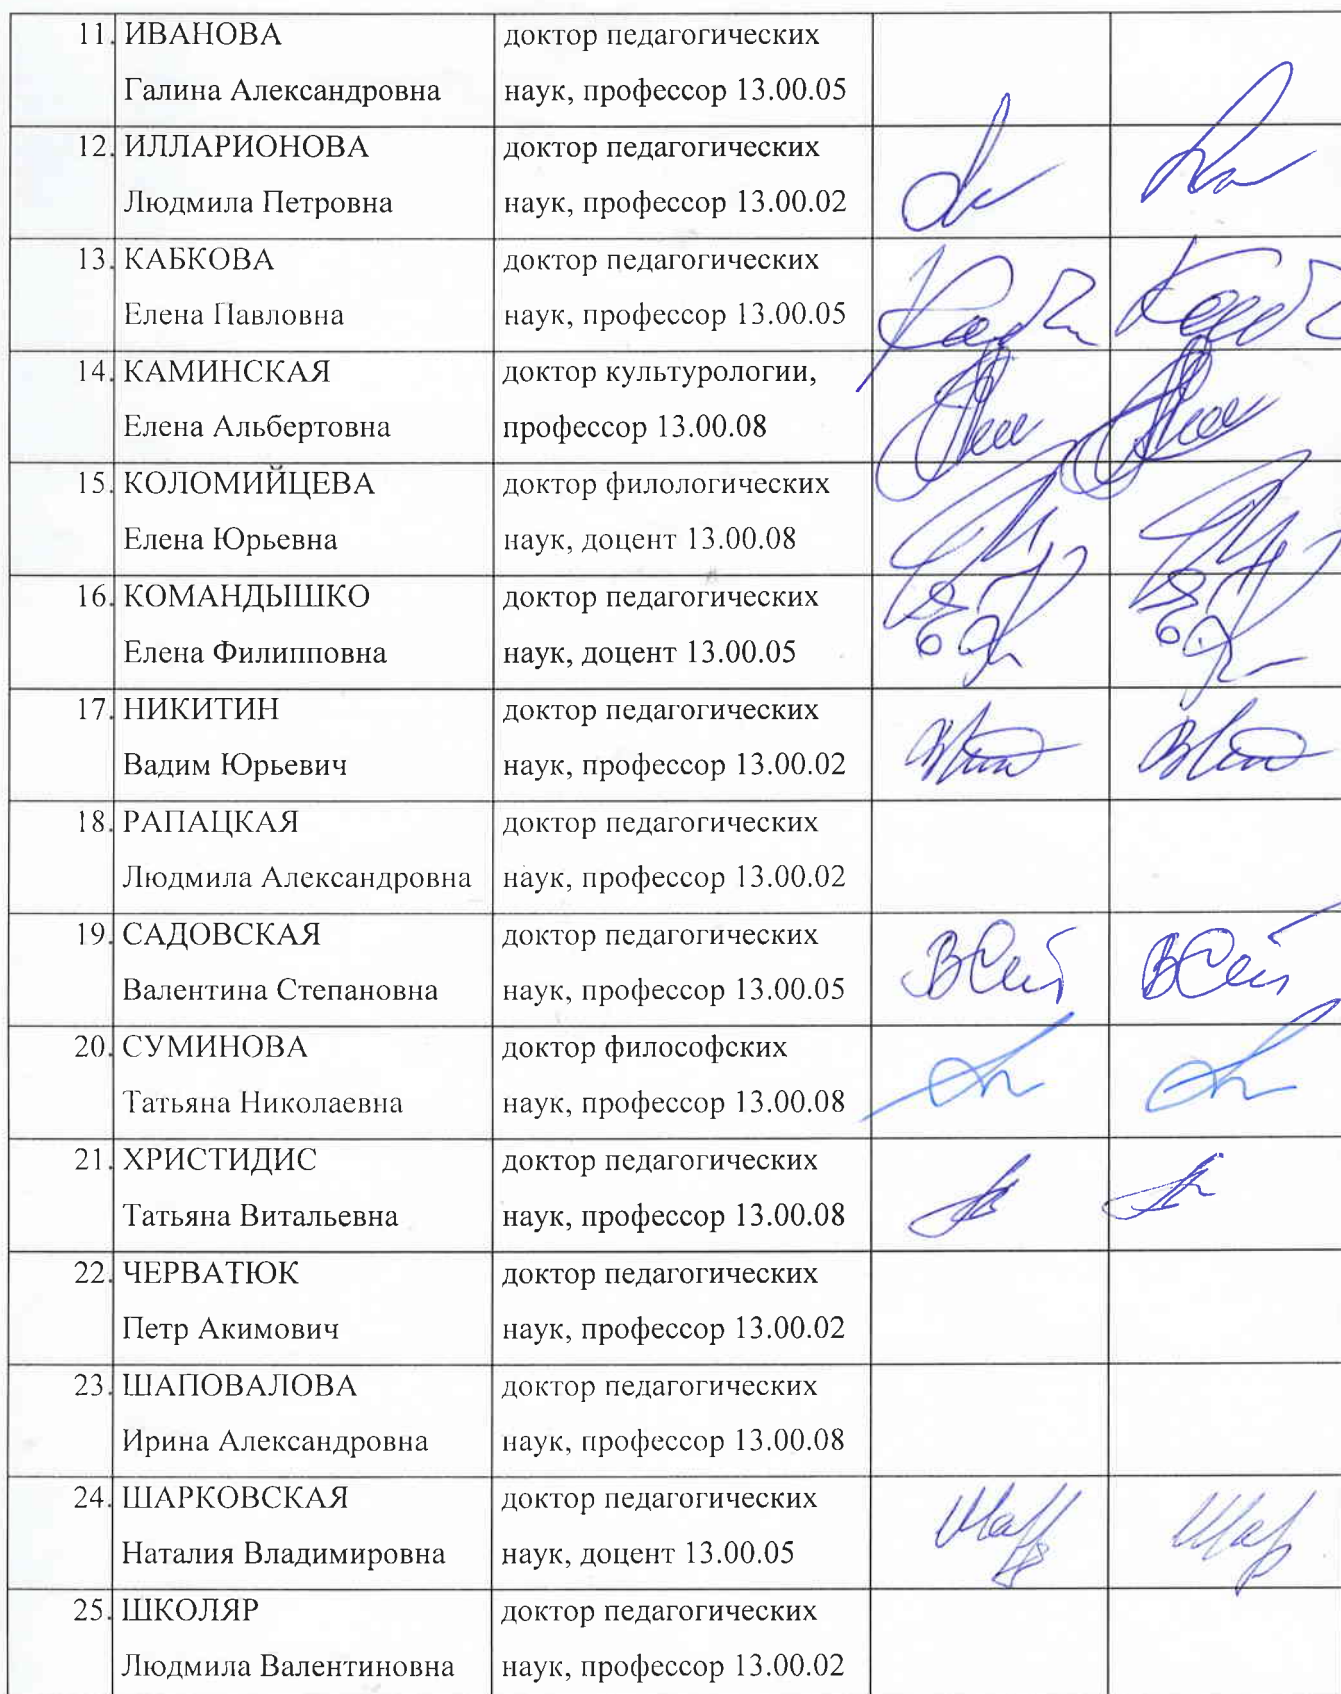 11. ИВАНОВА
Галина Александровна
доктор педагогических
наук, профессор 13.00.05
12. ИЛЛАРИОНОВА
Людмила Петровна
доктор педагогических
наук, профессор 13.00.02
13. КАБКОВА
Елена Павловна
доктор педагогических
наук, профессор 13.00.05
14. КАМИНСКАЯ
Елена Альбертовна
доктор культурологии,
профессор 13.00.08
15. КОЛОМИЙЦЕВА
Елена Юрьевна
доктор филологических
наук, доцент 13.00.08
16. КОМАНДЫШКО
Елена Филипповна
доктор педагогических
наук, доцент 13.00.05
17. НИКИТИН
Вадим Юрьевич
доктор педагогических
наук, профессор 13.00.02
18. РАПАЦКАЯ
Людмила Александровна
доктор педагогических
наук, профессор 13.00.02
19. САДОВСКАЯ
Валентина Степановна
доктор педагогических
наук, профессор 13.00.05
20. СУМИНОВА
Татьяна Николаевна
доктор философских
наук, профессор 13.00.08
21. ХРИСТИДИС
Татьяна Витальевна
доктор педагогических
наук, профессор 13.00.08
22. ЧЕРВАТЮК
Петр Акимович
доктор педагогических
наук, профессор 13.00.02
23. ШАПОВАЛОВА
Ирина Александровна
доктор педагогических
наук, профессор 13.00.08
24. ШАРКОВСКАЯ
Наталия Владимировна
доктор педагогических
наук, доцент 13.00.05
25. ШКОЛЯР
Людмила Валентиновна
доктор педагогических
наук, профессор 13.00.02